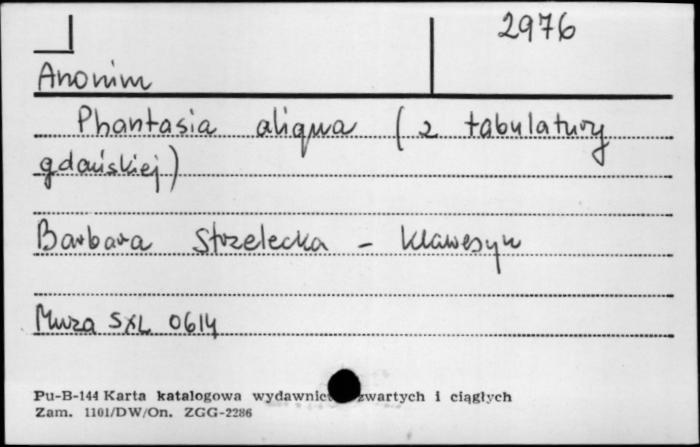 2976
Anonim
Phantasia aliqua (z tabulatury
gdańskiej)
Barbara Strzelecka - klawesyn
Muza SXL 0614
Pu-B-144 Karta katalogowa wydawnictw zwartych i ciągłych
Zam. 1101/DW/On. ZGG-2286